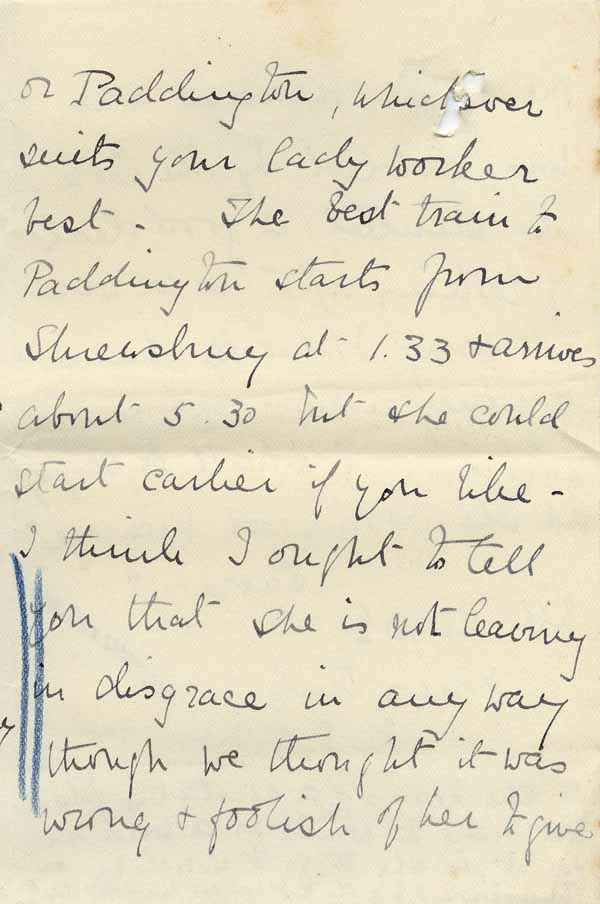 or Paddington, whichever
suits your lady worker
best - The best train to
Paddington starts from
Shrewsbury at 1.33 & arrives
about 5.30 but she could
start earlier if you like -
I think I ought to tell
you that she is not leaving
in disgrace in any way
though we thought it was
wrong & foolish of her to give